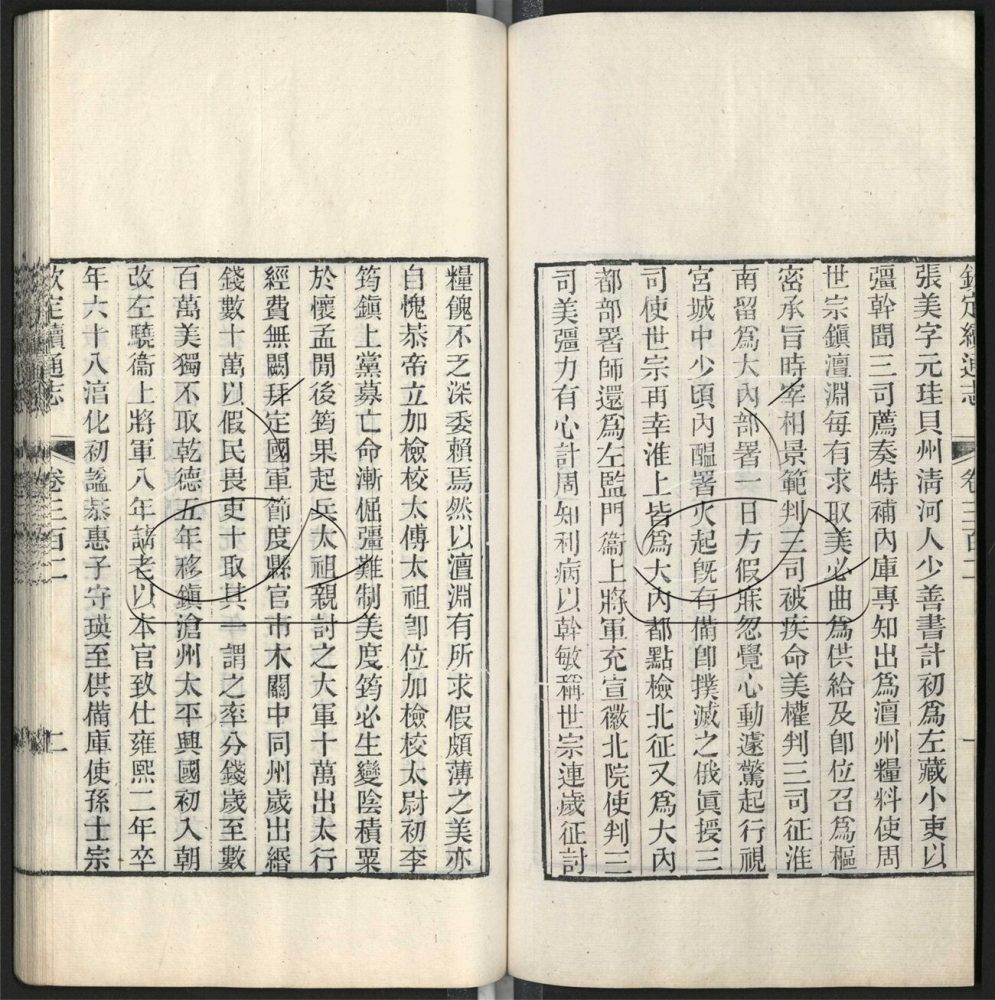 欽定續通志 卷三百二 一
張美字元珪貝州清河人少善書計初爲左藏小吏以
彊幹聞三司薦奏特補內庫專知出爲澶州糧料使周
世宗鎭澶淵每有求取美必曲爲供給及卽位召爲樞
密承旨時宰相景範判三司被疾命美權判三司征淮
南留爲大內部署一日方假寐忽覺心動遽驚起行視
宮城中少頃內醞署火起旣有備卽撲滅之俄眞授三
司使世宗再幸淮上皆爲大內都點檢北征又爲大內
都部署師還爲左監門衞上將軍充宣徽北院使判三
司美彊力有心計周知利病以幹敏稱世宗連歲征討
糧餽不乏深委賴焉然以澶淵有所求假頗薄之美亦
自愧恭帝立加檢校太傅太祖卽位加檢校太尉初李
筠鎭上黨募亡命漸倔彊難制美度筠必生變陰積粟
於懷孟閒後筠果起兵太祖親討之大軍十萬出太行
經費無闕拜定國軍節度縣官市木關中同州歲出緡
錢數十萬以假民長吏十取其一謂之率分錢歲至數
百萬美獨不取乾德五年移鎭滄州太平興國初入朝
改左驍衞上將軍八年請老以本官致仕雍熙二年卒
年六十八淳化初諡恭惠子守瑛至供備庫使孫士宗
欽定續通志 卷三百二 二